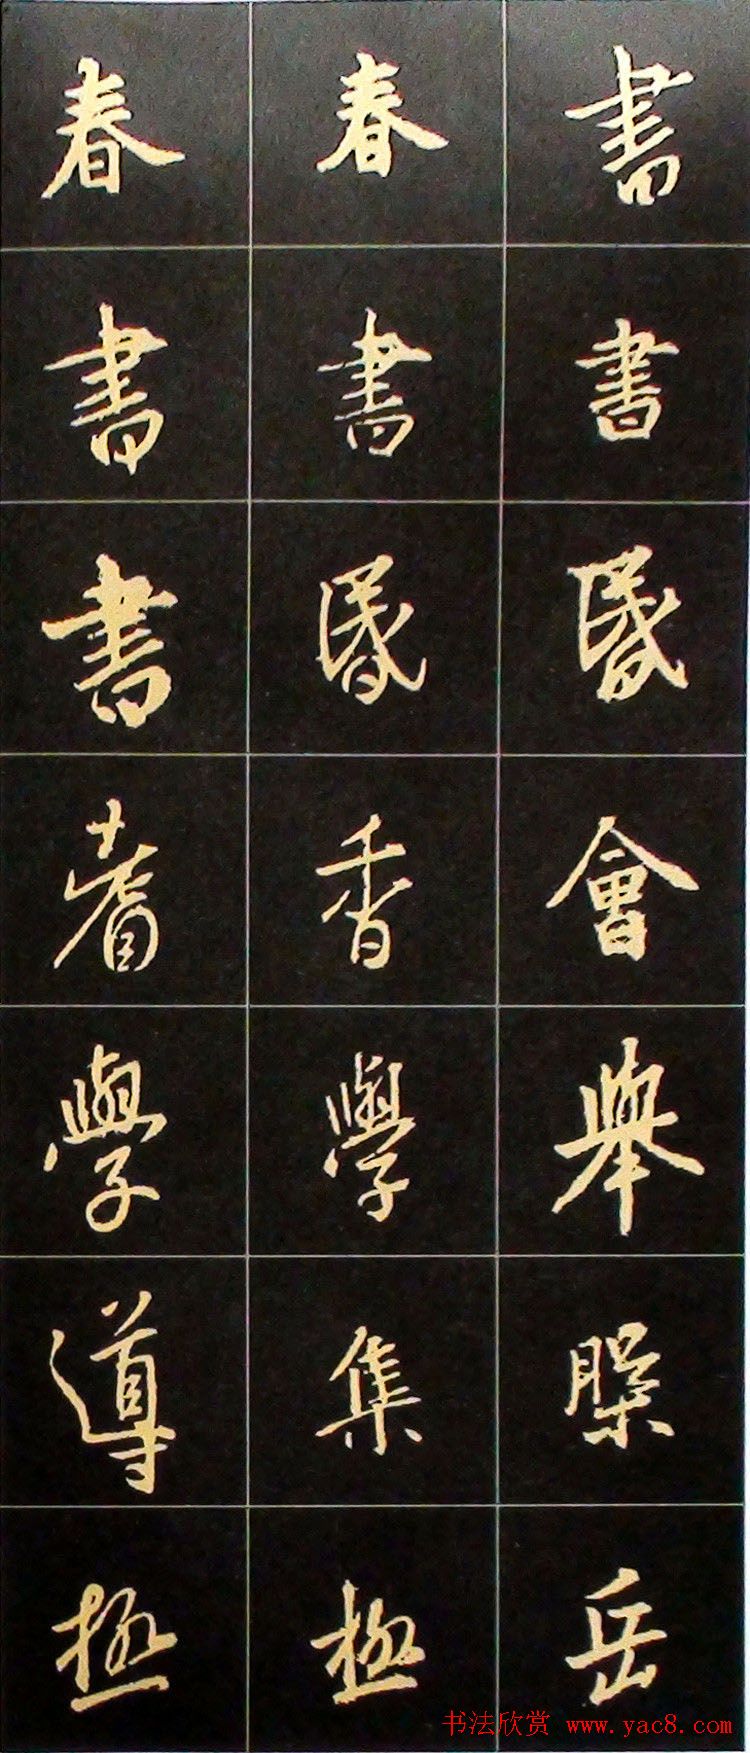 春 春 書
書 書 書
書 昬 昬
耆 香 會
學 學 舉
導 集
極 極 岳
书法欣赏 www.yac8.com